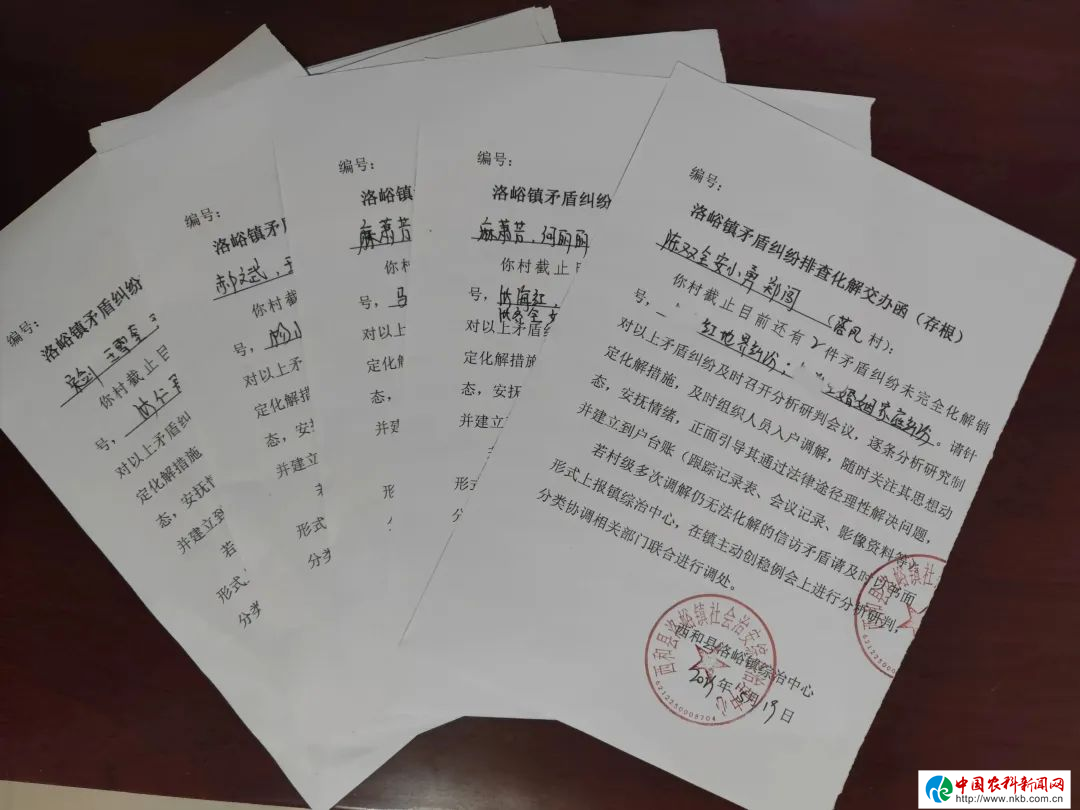 编号:
洛峪镇矛盾纠纷
你村截止目
号,
对以上矛盾纠
定化解措施
态,安抚情
并建立到
若
形式
分类
编号:
洛峪镇矛盾
你村截
号,
对以上矛
定化解措
态,安抚
并建立
若
形式
分类
编号:
洛峪镇
麻萧芳
你村
号,马
对以上
定化解
态,
并建
形
分
编号:
洛峪镇矛盾纠纷
麻萧芳、何丽丽
你村截止目
号,
对以上矛盾纠
定化解措施
态,安抚情
并建立
形式
分类
编号:
洛峪镇矛盾纠纷排查化解交办函(存根)
陈双全 安小勇 郑闯 (落凤村):
你村截止目前还有2件矛盾纠纷未完全化解销
号,一、红地界纠纷;婚姻家庭纠纷。请针
对以上矛盾纠纷及时召开分析研判会议,逐条分析研究制
定化解措施,及时组织人员入户调解,随时关注其思想动
态,安抚情绪,正面引导其通过法律途径理性解决问题,
并建立到户台账(跟踪记录表、会议记录、影像资料等
若村级多次调解仍无法化解的信访矛盾请及时以书面
形式上报镇综治中心,在镇主动创稳例会上进行分析研判,
分类协调相关部门联合进行调处。
西和县洛峪镇综治中心
年5月19日
西和县洛峪镇社会治安综
6212250006704
西和县洛峪镇社
62122500
中国农科新闻网
http://www.nkb.com.cn